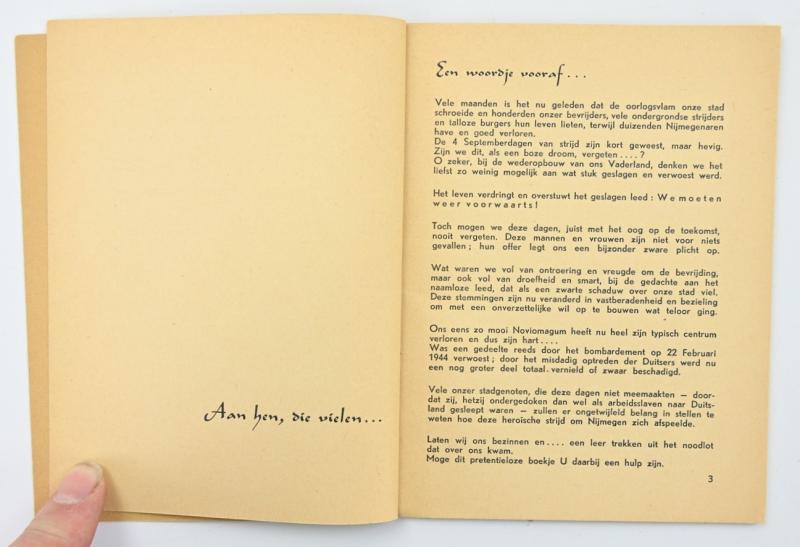 Aan hen, die vielen...
Een woordje vooraf...
Vele maanden is het nu geleden dat de oorlogsvlam onze stad
schroeide en honderden onzer bevrijders, vele ondergrondse strijders
en talloze burgers hun leven lieten, terwijl duizenden Nijmegenaren
have en goed verloren.
De 4 Septemberdagen van strijd zijn kort geweest, maar hevig.
Zijn we dit, als een boze droom, vergeten ....?
O zeker, bij de wederopbouw van ons Vaderland, denken we het
liefst zo weinig mogelijk aan wat stuk geslagen en verwoest werd.
Het leven verdringt en overstuwt het geslagen leed : We moeten
weer voorwaarts!
Toch mogen we deze dagen, juist met het oog op de toekomst,
nooit vergeten. Deze mannen en vrouwen zijn niet voor niets
gevallen ; hun offer legt ons een bijzonder zware plicht op.
Wat waren we vol van ontroering en vreugde om de bevrijding,
maar ook vol van droefheid en smart, bij de gedachte aan het
naamloze leed, dat als een zwarte schaduw over onze stad viel.
Deze stemmingen zijn nu veranderd in vastberadenheid en bezieling
om met een onverzettelijke wil op te bouwen wat teloor ging.
Ons eens zo mooi Noviomagum heeft nu heel zijn typisch centrum
verloren en dus zijn hart....
Was een gedeelte reeds door het bombardement op 22 Februari
1944 verwoest ; door het misdadig optreden der Duitsers werd nu
een nog groter deel totaal vernield of zwaar beschadigd.
Vele onzer stadgenoten, die deze dagen niet meemaakten — door-
dat zij, hetzij ondergedoken dan wel als arbeidsslaven naar Duits-
land gesleept waren — zullen er ongetwijfeld belang in stellen te
weten hoe deze heroische strijd om Nijmegen zich afspeelde.
Laten wij ons bezinnen en.... een leer trekken uit het noodlot
dat over ons kwam.
Moge dit pretentieloze boekje U daarbij een hulp zijn.
3